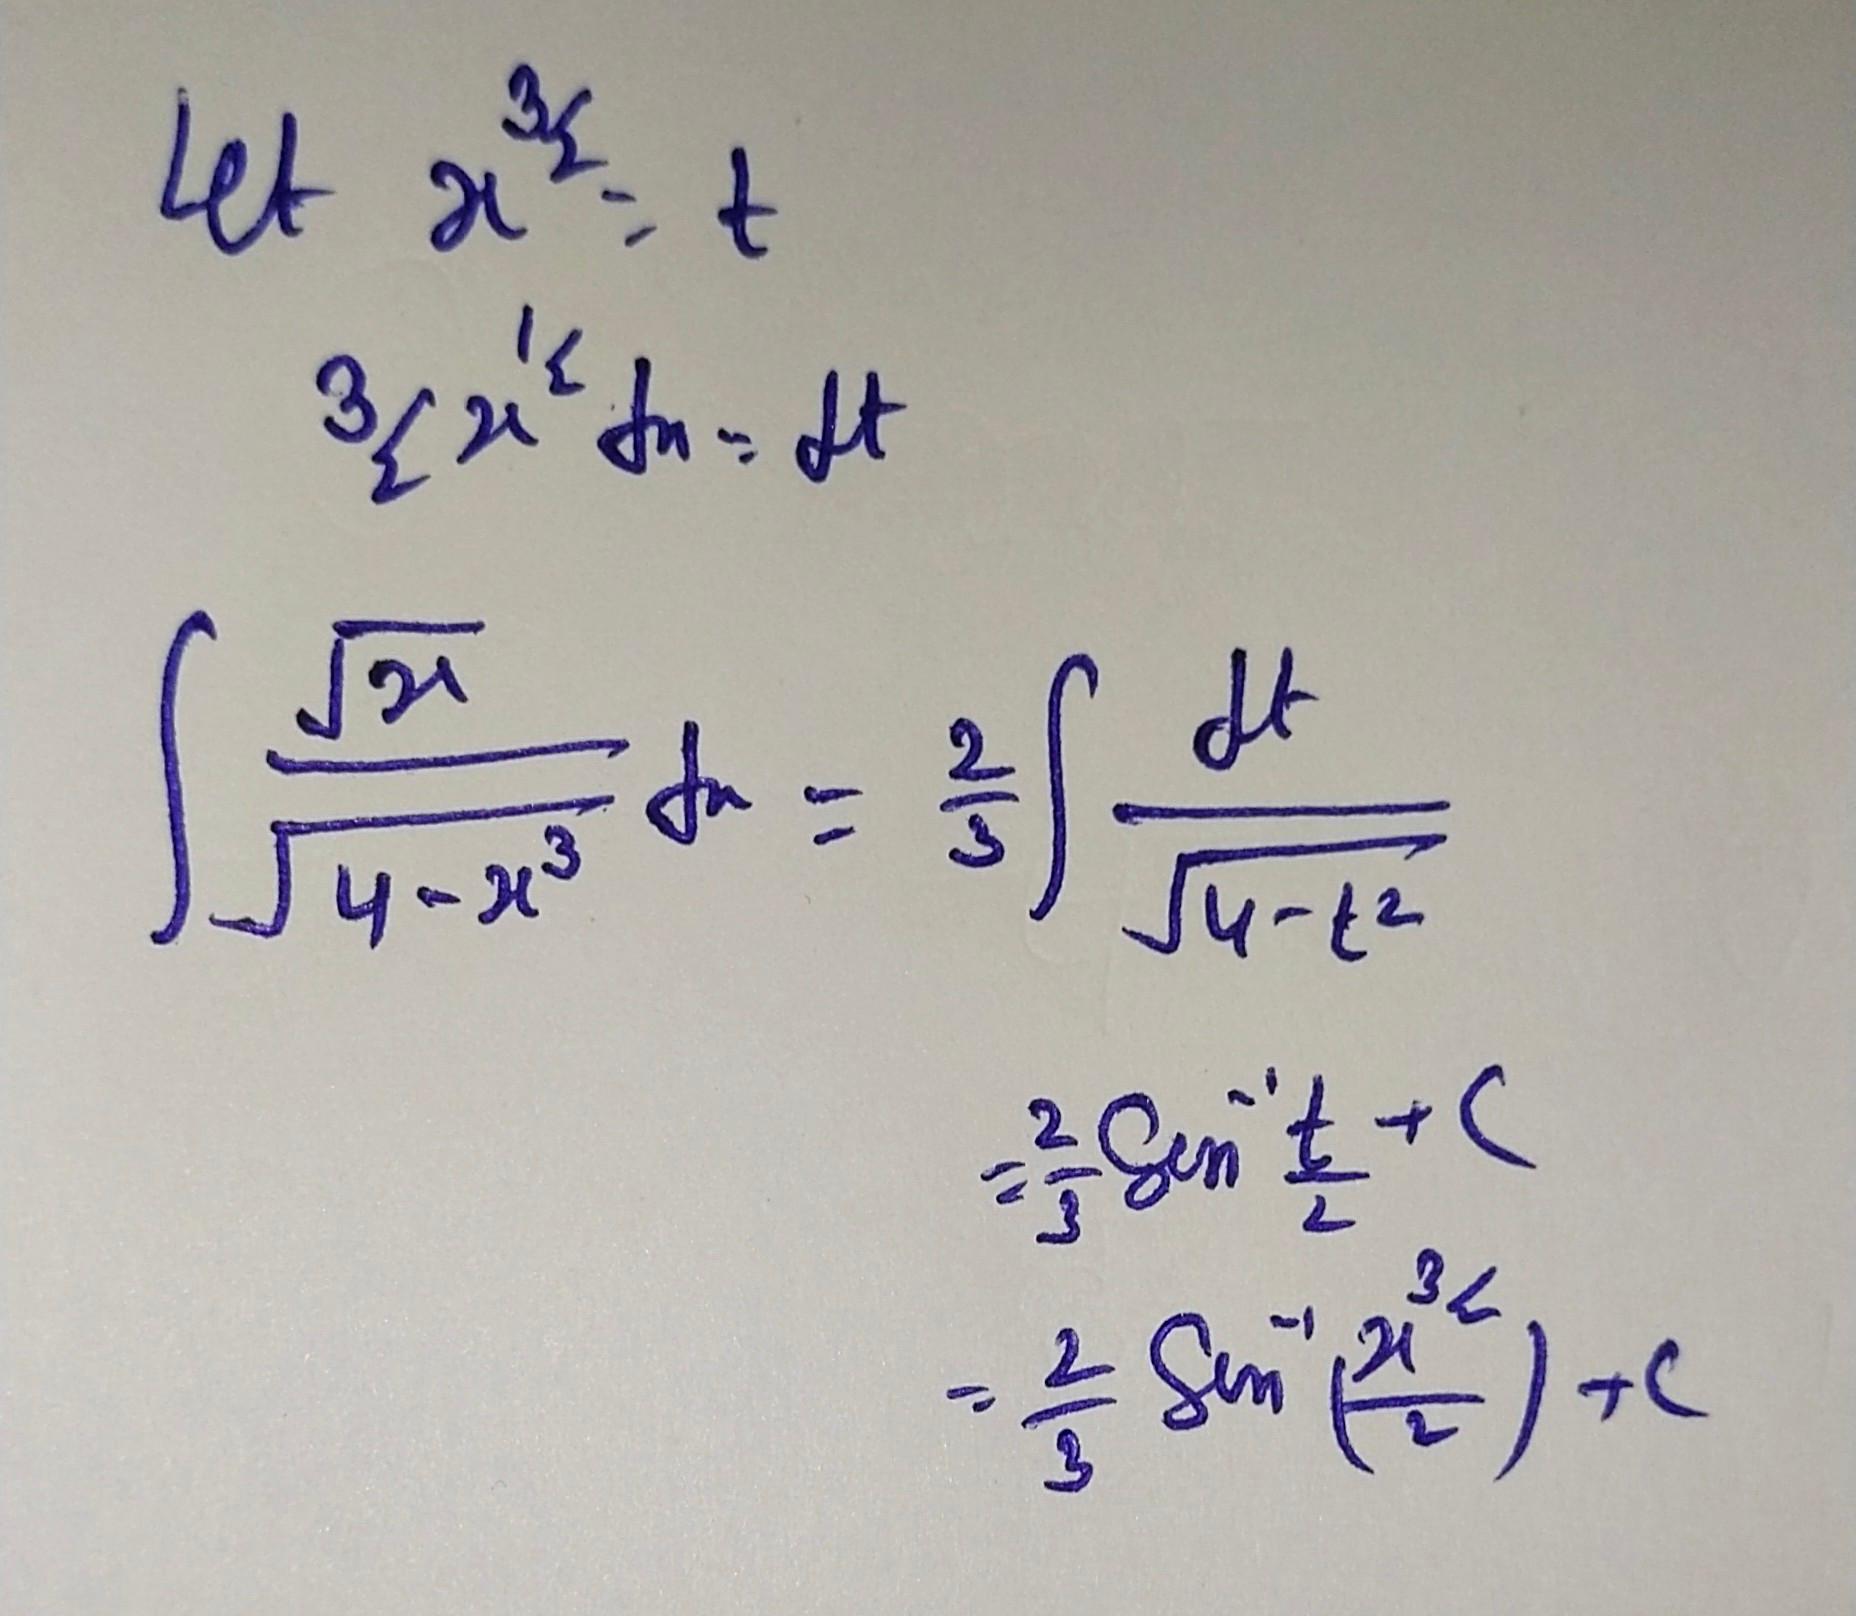 Let x^{3/2} = t
3/2 x^{1/2} dx = dt
∫ √x / √(4-x³) dx = 2/3 ∫ dt / √(4-t²)
= 2/3 Sin⁻¹ t/2 + C
= 2/3 Sin⁻¹ (x^{3/2} / 2) + C